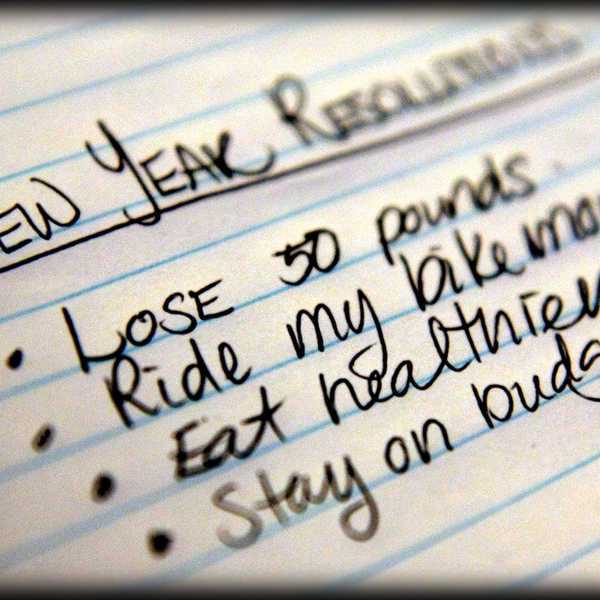 EW YEAR RESOLUTIONS
• LOSE 50 pounds.
• Ride my bike mo
• Eat healthier
• Stay on budg